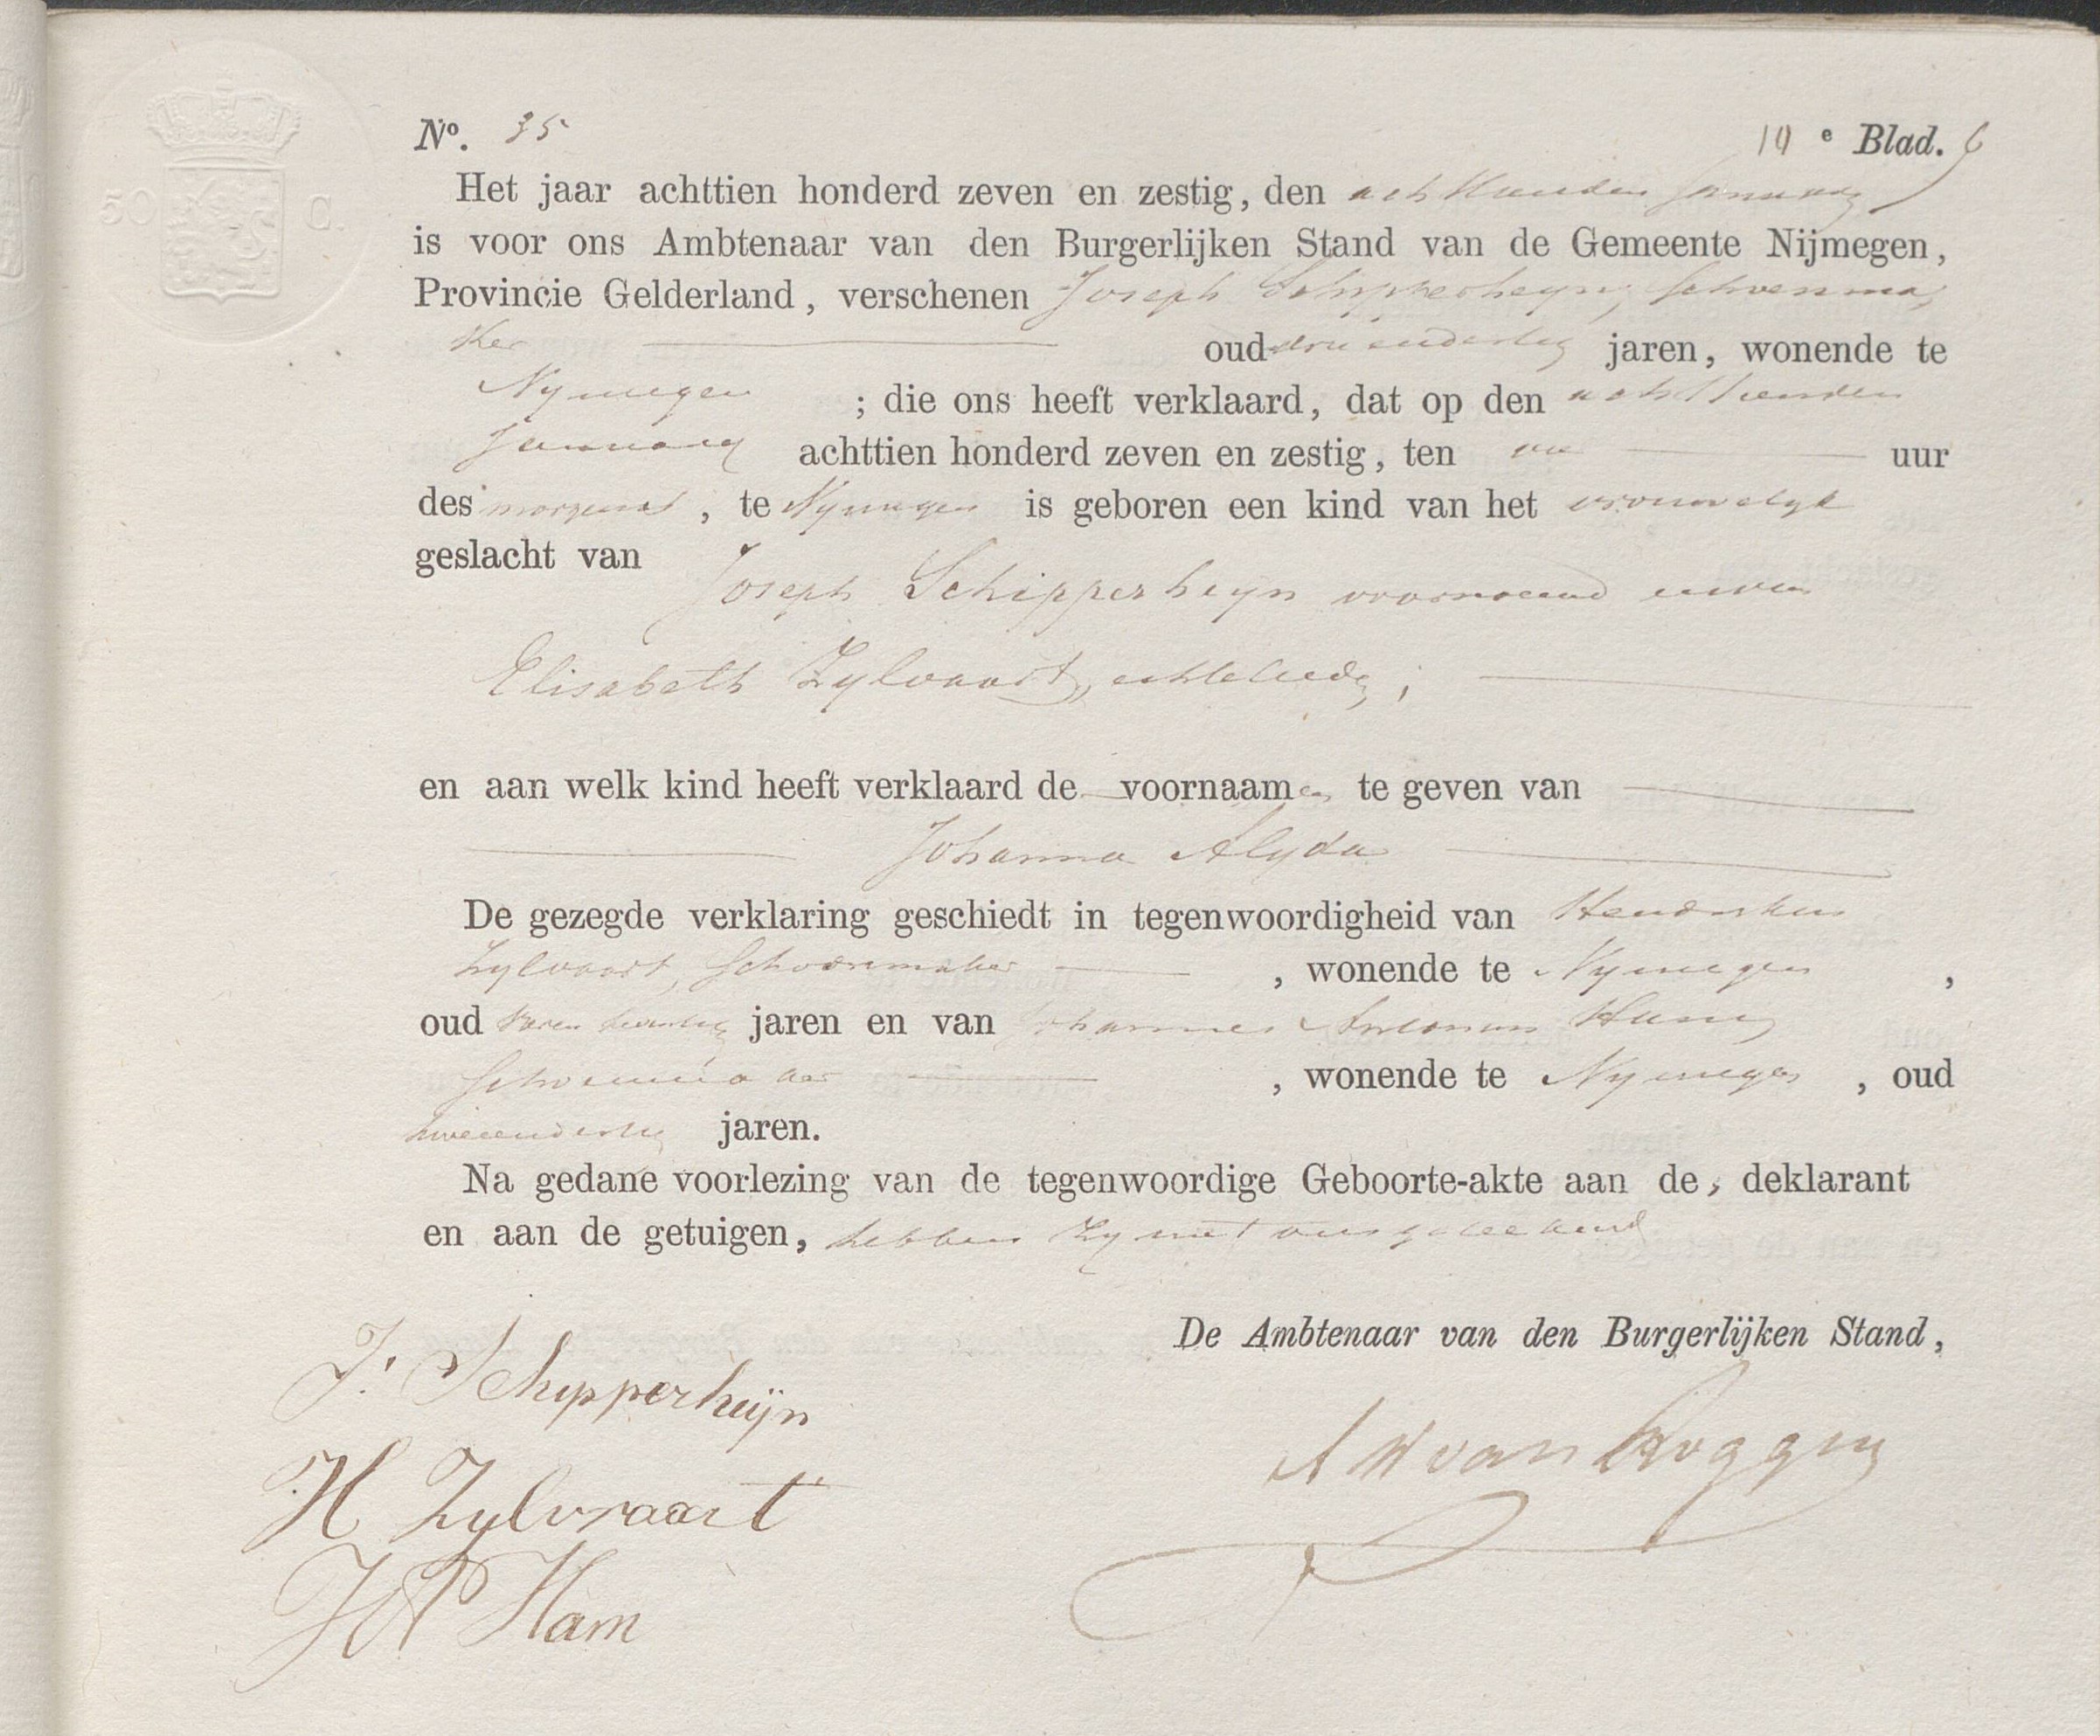 50 C.
No. 35 10e Blad.
Het jaar achttien honderd zeven en zestig, den achttienden January
is voor ons Ambtenaar van den Burgerlijken Stand van de Gemeente Nijmegen,
Provincie Gelderland, verschenen Joseph Schipperheyn, Schoenma
ker oud drieendertig jaren, wonende te
Nymegen ; die ons heeft verklaard, dat op den achttienden
January achttien honderd zeven en zestig, ten uur
des morgens, te Nymegen is geboren een kind van het vrouwelyk
geslacht van Joseph Schipperheyn voornoemd en van
Elisabeth Zylvaart, echtelieden;
en aan welk kind heeft verklaard de voornaamen te geven van
Johanna Alyda
De gezegde verklaring geschiedt in tegenwoordigheid van Hendrikus
Zylvaart, Schoenmaker, wonende te Nymegen,
oud jaren en van Johannes Antonius Ham,
Schoenmaker, wonende te Nymegen, oud
tweeendertig jaren.
Na gedane voorlezing van de tegenwoordige Geboorte-akte aan de, deklarant
en aan de getuigen, hebben zy met ons geteekend
De Ambtenaar van den Burgerlijken Stand,
J. Schipperheijn
H Zylvraart
JA Ham